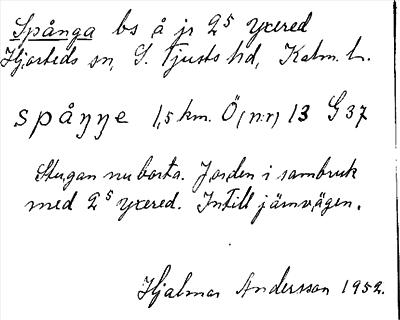 Spånga bs å jr 2⁵ Yxered
Hjorteds sn, S. Tjusts hd, Kalm. l.
spåŋŋe 1,5 km. Ö (n:r) 13 G37
Stugan nu borta. Jorden i sambruk
med 2⁵ Yxered. Intill järnvägen.
Hjalmar Andersson 1952.